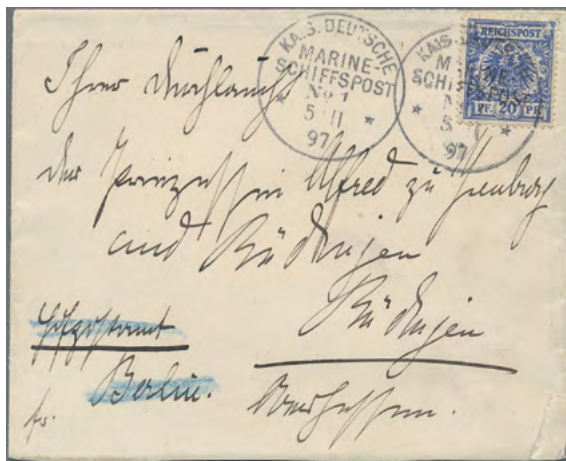 KAIS. DEUTSCHE
MARINE-
SCHIFFSPOST
No 1
5 II
97
KAIS. DEUTSCHE
MARINE-
SCHIFFSPOST
97
REICHSPOST
PF. 20 PF.
Ihrer Durchlaucht
der Prinzessin Alfred zu Isenburg
und Büdingen
Büdingen
Oberhessen.
Hofpostamt
Berlin.
fr.